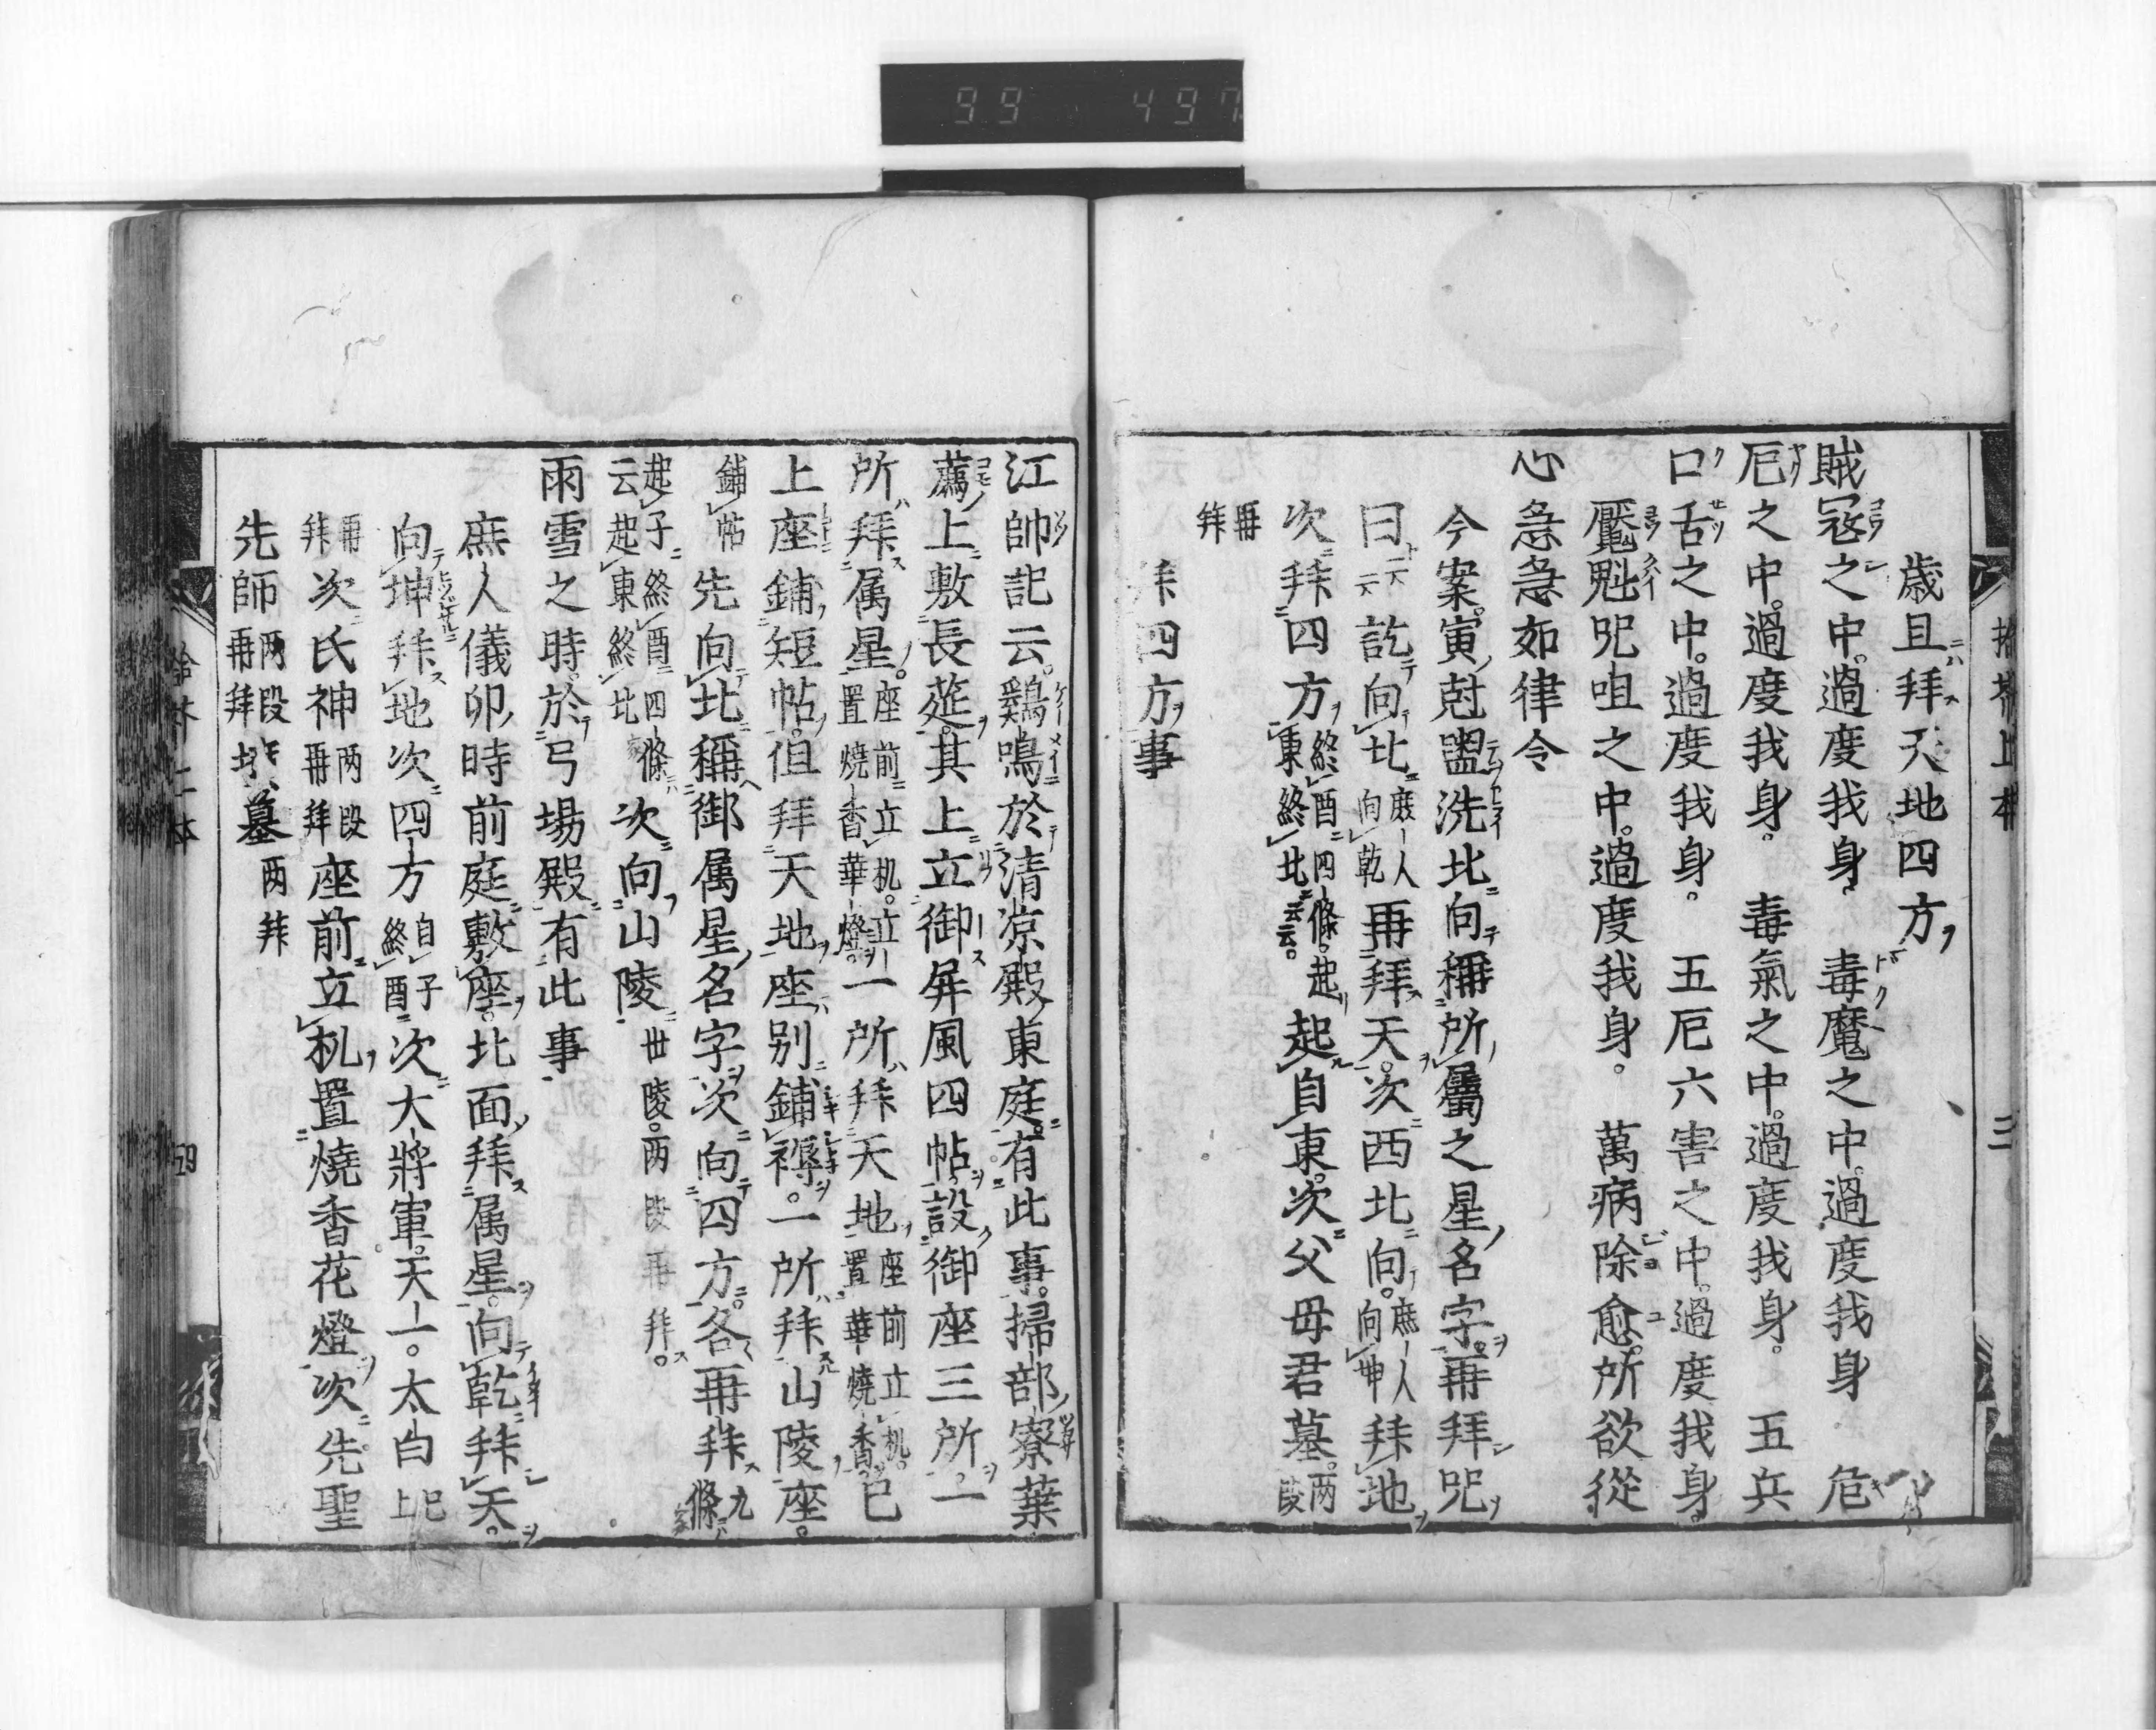 99 497
歳旦拜天地四方
賊冦之中過度我身 毒魔之中過度我身 危
厄之中過度我身 毒氣之中過度我身 五兵
口舌之中過度我身 五厄六害之中過度我身
魘魁呪咀之中過度我身 萬病除愈所欲從
心急急如律令
今案寅尅盥洗北向稱所屬之星名字再拜呪
曰云云訖向北庶人向乾再拜天次西北向庶人向坤拜地
次拜四方終酉四條起東終北云云起自東次父母君墓兩段
再拜
拜四方事
江帥記云鷄鳴於清凉殿東庭有此事掃部寮葉
薦上敷長莚其上立御屏風四帖設御座三所一
所拜属星座前立机立置燒香華燈一所拜天地座前立机置華燒香已
上座鋪短帖但拜天地座別鋪褥一所拜山陵座
鋪帖先向北稱御属星名字次向四方各再拜九條
起子終酉四條云起東終北次向山陵世陵兩段再拜
雨雪之時於弓場殿有此事
庶人儀卯時前庭敷座北面拜属星向乾拜天
向坤拜地次四方自子終酉次大將軍天一太白已上
再拜次氏神兩段再拜座前立机置燒香花燈次先聖
先師兩段再拜墓兩拜